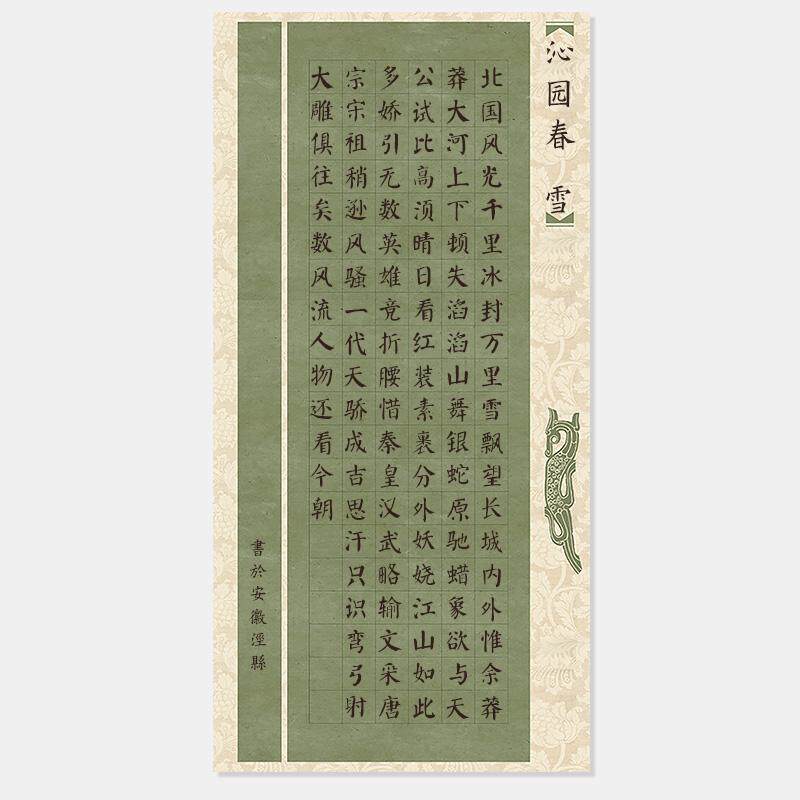 沁园春 雪
北国风光千里冰封万里雪飘望长城内外惟余莽
莽大河上下顿失滔滔山舞银蛇原驰蜡象欲与天
公试比高须晴日看红装素裹分外妖娆江山如此
多娇引无数英雄竞折腰惜秦皇汉武略输文采唐
宗宋祖稍逊风骚一代天骄成吉思汗只识弯弓射
大雕俱往矣数风流人物还看今朝
書於安徽涇縣